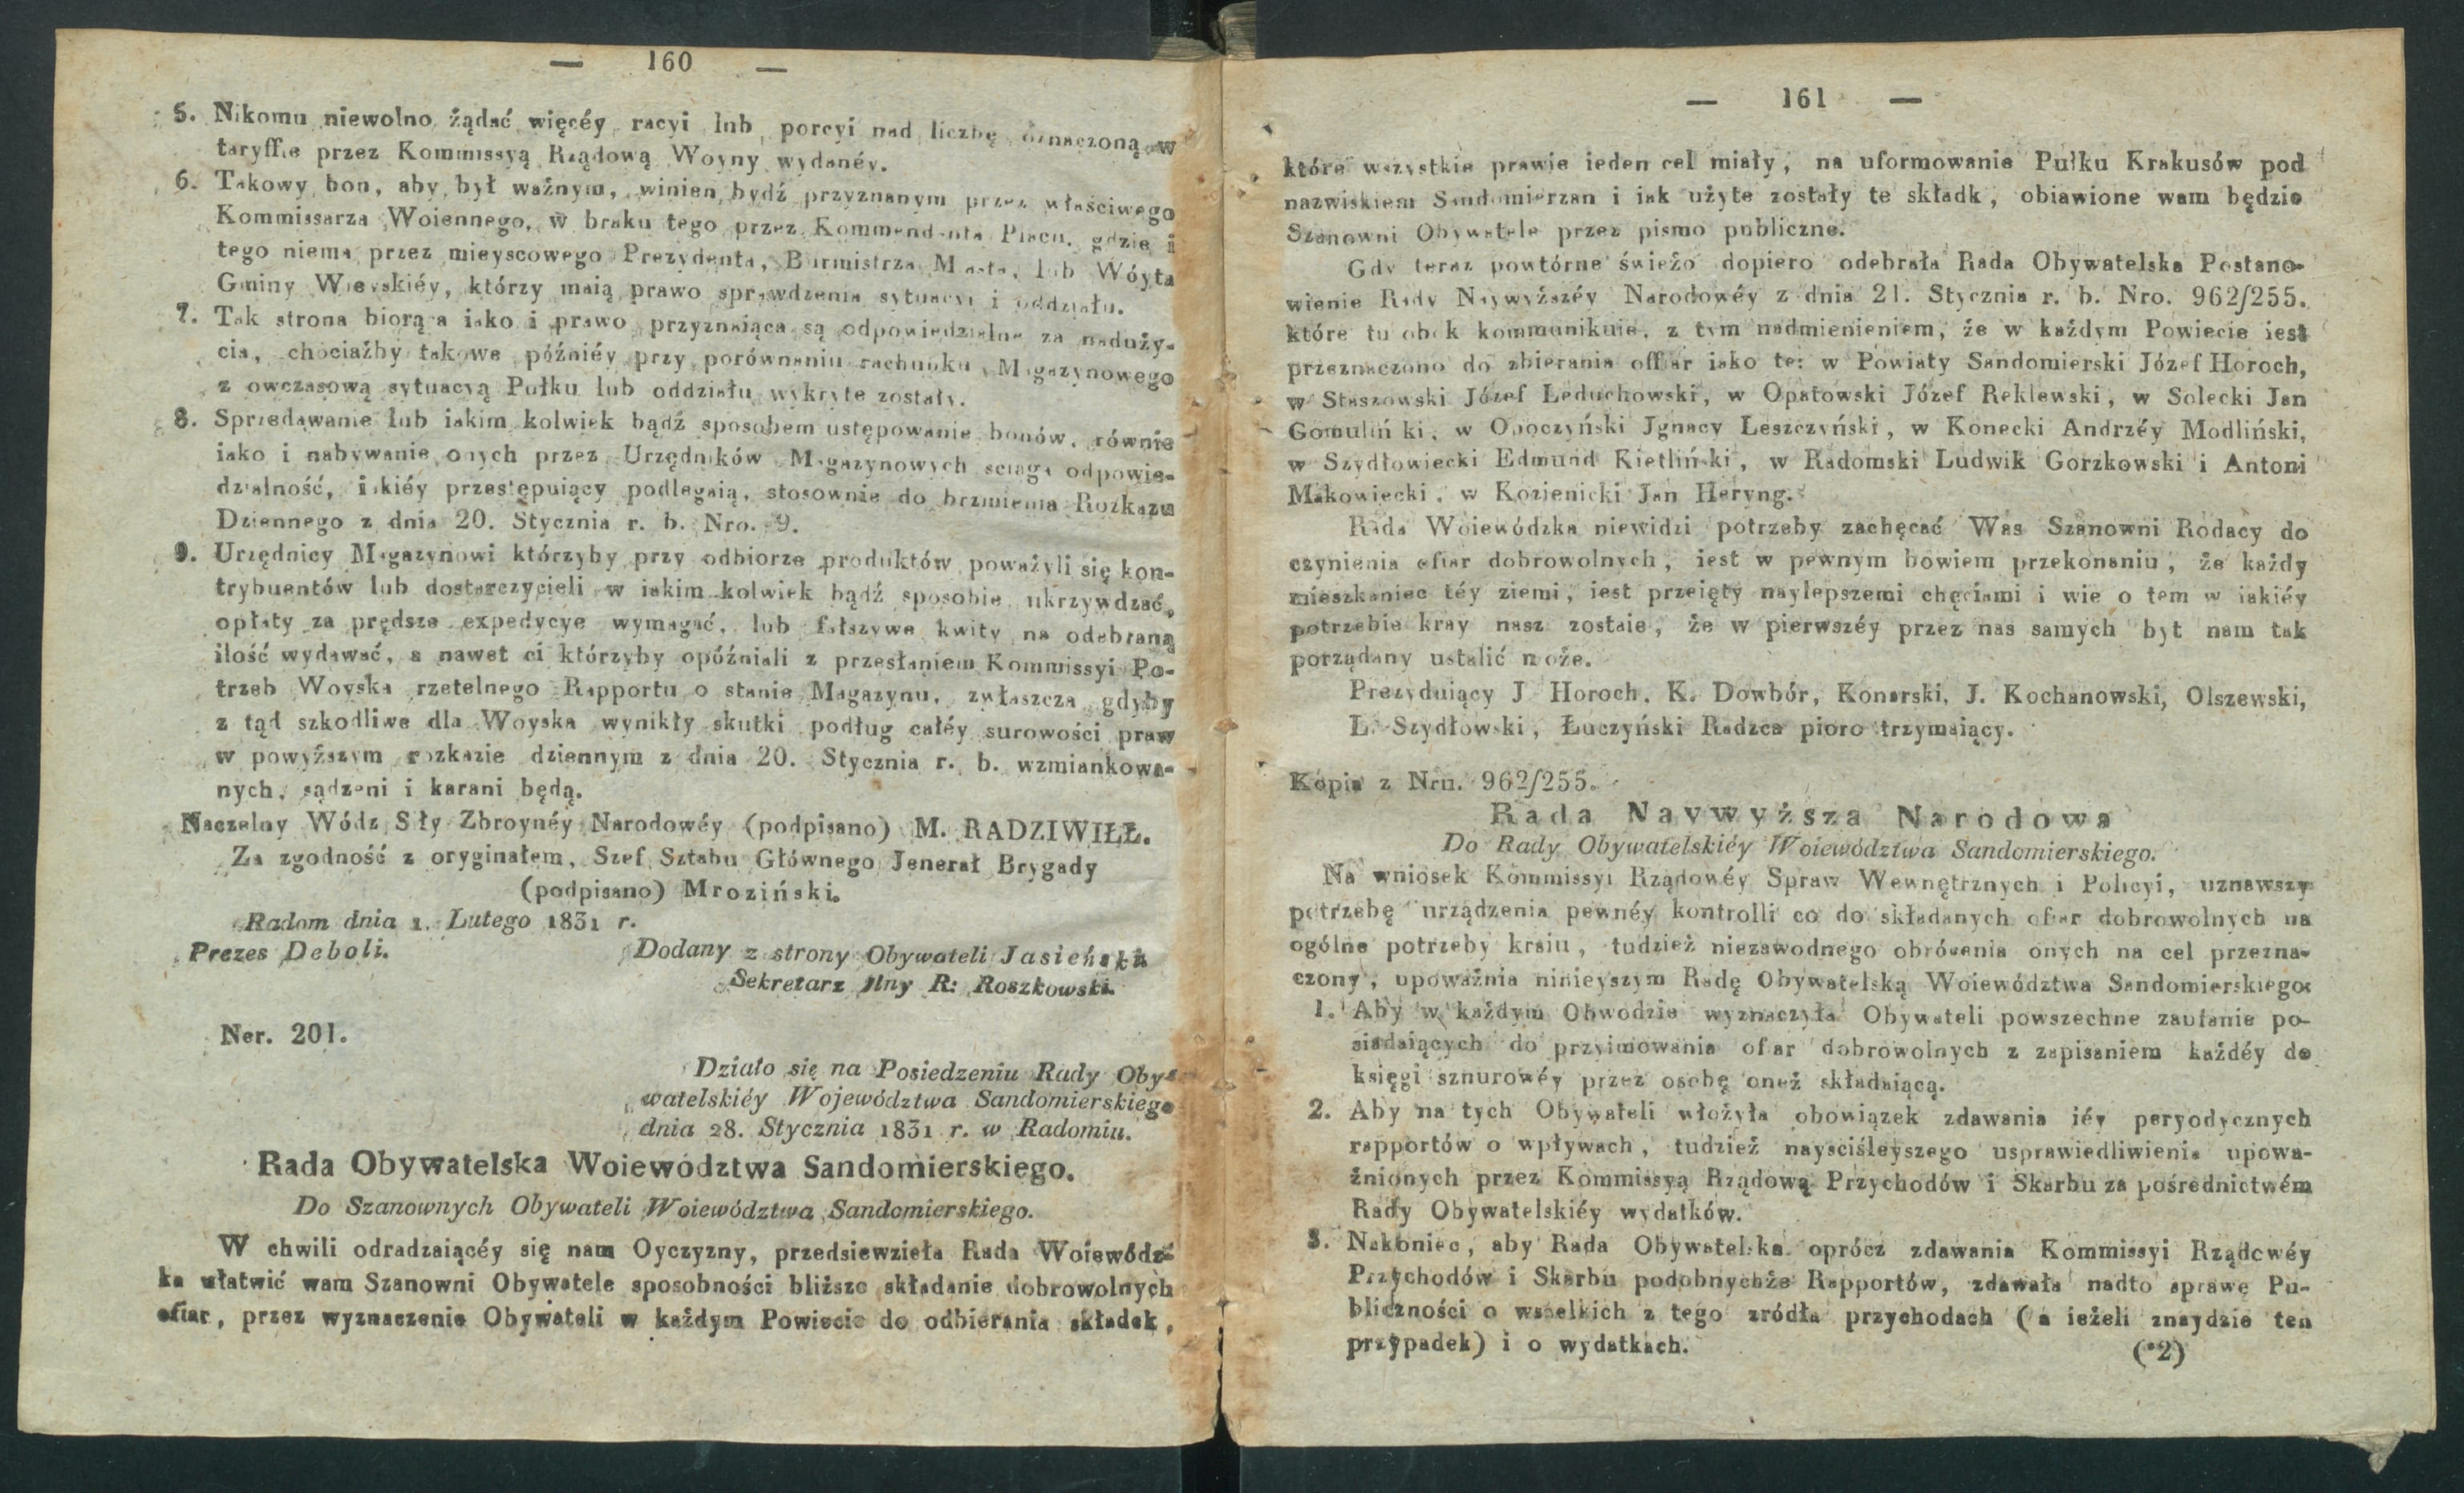 — 160 —
5. Nikomu niewolno żądać więcéy racyi lub porcyi nad liczbę oznaczoną w
taryffie przez Kommissyą Rządową Woyny wydanéy.
6. Takowy bon, aby był ważnym, winien bydź przyznanym przez właściwego
Kommissarza Woiennego, w braku tego przez Kommendanta Placu, gdzie i
tego niema przez mieyscowego Prezydenta, Burmistrza Miasta, lub Wóyta
Gminy Wieyskiéy, którzy maią prawo sprawdzenia sytuacyi i oddziału.
7. Tak strona biorąca iako i prawo przyznaiąca są odpowiedzialne za naduży-
cia, chociażby takowe późniéy przy porównaniu rachunku Magazynowego
z owczasową sytuacyą Pułku lub oddziału wykryte zostały.
8. Sprzedawanie lub iakim kolwiek bądź sposobem ustępowanie bonów, równie
iako i nabywanie onych przez Urzędników Magazynowych sciąga odpowie-
dzialność, iakiéy przestępuiący podlegaią, stosownie do brzmienia Rozkazu
Dziennego z dnia 20. Stycznia r. b. Nro. 9.
9. Urzędnicy Magazynowi którzyby przy odbiorze produktów poważyli się kon-
trybuentów lub dostarczycieli w iakim kolwiek bądź sposobie ukrzywdzać,
opłaty za prędsze expedycye wymagać, lub fałszywe kwity na odebraną
ilość wydawać, a nawet ci którzyby opóźniali z przesłaniem Kommissyi Po-
trzeb Woyska rzetelnego Rapportu o stanie Magazynu, zwłaszcza gdyby
z tąd szkodliwe dla Woyska wynikły skutki podług całéy surowości praw
w powyższym rozkazie dziennym z dnia 20. Stycznia r. b. wzmiankowa-
nych, sądzeni i karani będą.
Naczelny Wódz Siły Zbroynéy Narodowéy (podpisano) M. RADZIWIŁŁ.
Za zgodność z oryginałem, Szef Sztabu Głównego Jenerał Brygady
(podpisano) Mroziński.
Radom dnia 1. Lutego 1831 r.
Prezes Deboli. Dodany z strony Obywateli Jasieński
Sekretarz Jlny R: Roszkowski.
Ner. 201.
Działo się na Posiedzeniu Rady Oby-
watelskiéy Województwa Sandomierskiego
dnia 28. Stycznia 1831 r. w Radomiu.
Rada Obywatelska Woiewództwa Sandomierskiego.
Do Szanownych Obywateli Woiewództwa Sandomierskiego.
W chwili odradzaiącéy się nam Oyczyzny, przedsiewzieła Rada Woiewódz-
ka ułatwić wam Szanowni Obywatele sposobności bliższe składanie dobrowolnych
ofiar, przez wyznaczenie Obywateli w każdym Powiecie do odbierania składek,
— 161 —
które wszystkie prawie ieden cel miały, na uformowanie Pułku Krakusów pod
nazwiskiem Sandomierzan i iak użyte zostały te składk, obiawione wam będzie
Szanowni Obywatele przez pismo publiczne.
Gdy teraz powtórne świeżo dopiero odebrała Rada Obywatelska Postano-
wienie Rady Naywyższéy Narodowéy z dnia 21. Stycznia r. b. Nro. 962/255.
które tu obok kommunikuie, z tym nadmienieniem, że w każdym Powiecie iest
przeznaczono do zbierania offiar iako te: w Powiaty Sandomierski Józef Horoch,
w Staszowski Józef Leduchowski, w Opatowski Józef Reklewski, w Solecki Jan
Gomuliń ki, w Opoczyński Jgnacy Leszczyński, w Konecki Andrzéy Modliński,
w Szydłowiecki Edmund Kietliński, w Radomski Ludwik Gorzkowski i Antoni
Makowiecki, w Kozienicki Jan Heryng.
Rada Woiewódzka niewidzi potrzeby zachęcać Was Szanowni Rodacy do
czynienia ofiar dobrowolnych, iest w pewnym bowiem przekonaniu, że każdy
mieszkaniec téy ziemi, iest przeięty naylepszemi chęciami i wie o tem w iakiéy
potrzebie kray nasz zostaie, że w pierwszéy przez nas samych byt nam tak
porządany ustalić może.
Prezyduiący J Horoch. K. Dowbór, Konarski, J. Kochanowski, Olszewski,
L. Szydłowski, Łuczyński Radzca pioro trzymaiący.
Kopia z Nru. 962/255.
Rada Naywyższa Narodowa
Do Rady Obywatelskiéy Woiewództwa Sandomierskiego.
Na wniosek Kommissyi Rządowéy Spraw Wewnętrznych i Policyi, uznawszy
potrzebę urządzenia pewnéy kontrolli co do składanych ofiar dobrowolnych na
ogólne potrzeby kraiu, tudzież niezawodnego obrócenia onych na cel przezna-
czony, upoważnia ninieyszym Radę Obywatelską Woiewództwa Sandomierskiego:
1. Aby w każdym Obwodzie wyznaczyła Obywateli powszechne zaufanie po-
siadaiących do przyimowania ofiar dobrowolnych z zapisaniem każdéy do
księgi sznurowéy przez osobę oneż składaiącą.
2. Aby na tych Obywateli włożyła obowiązek zdawania iéy peryodycznych
rapportów o wpływach, tudzież nayściśleyszego usprawiedliwienia upowa-
żnionych przez Kommissyą Rządową Przychodów i Skarbu za pośrednictwém
Rady Obywatelskiéy wydatków.
3. Nakoniec, aby Rada Obywatelska oprócz zdawania Kommissyi Rządowéy
Przychodów i Skarbu podobnychże Rapportów, zdawała nadto sprawę Pu-
bliczności o wszelkich z tego zródła przychodach (a ieżeli znaydzie ten
przypadek) i o wydatkach.
(*2)